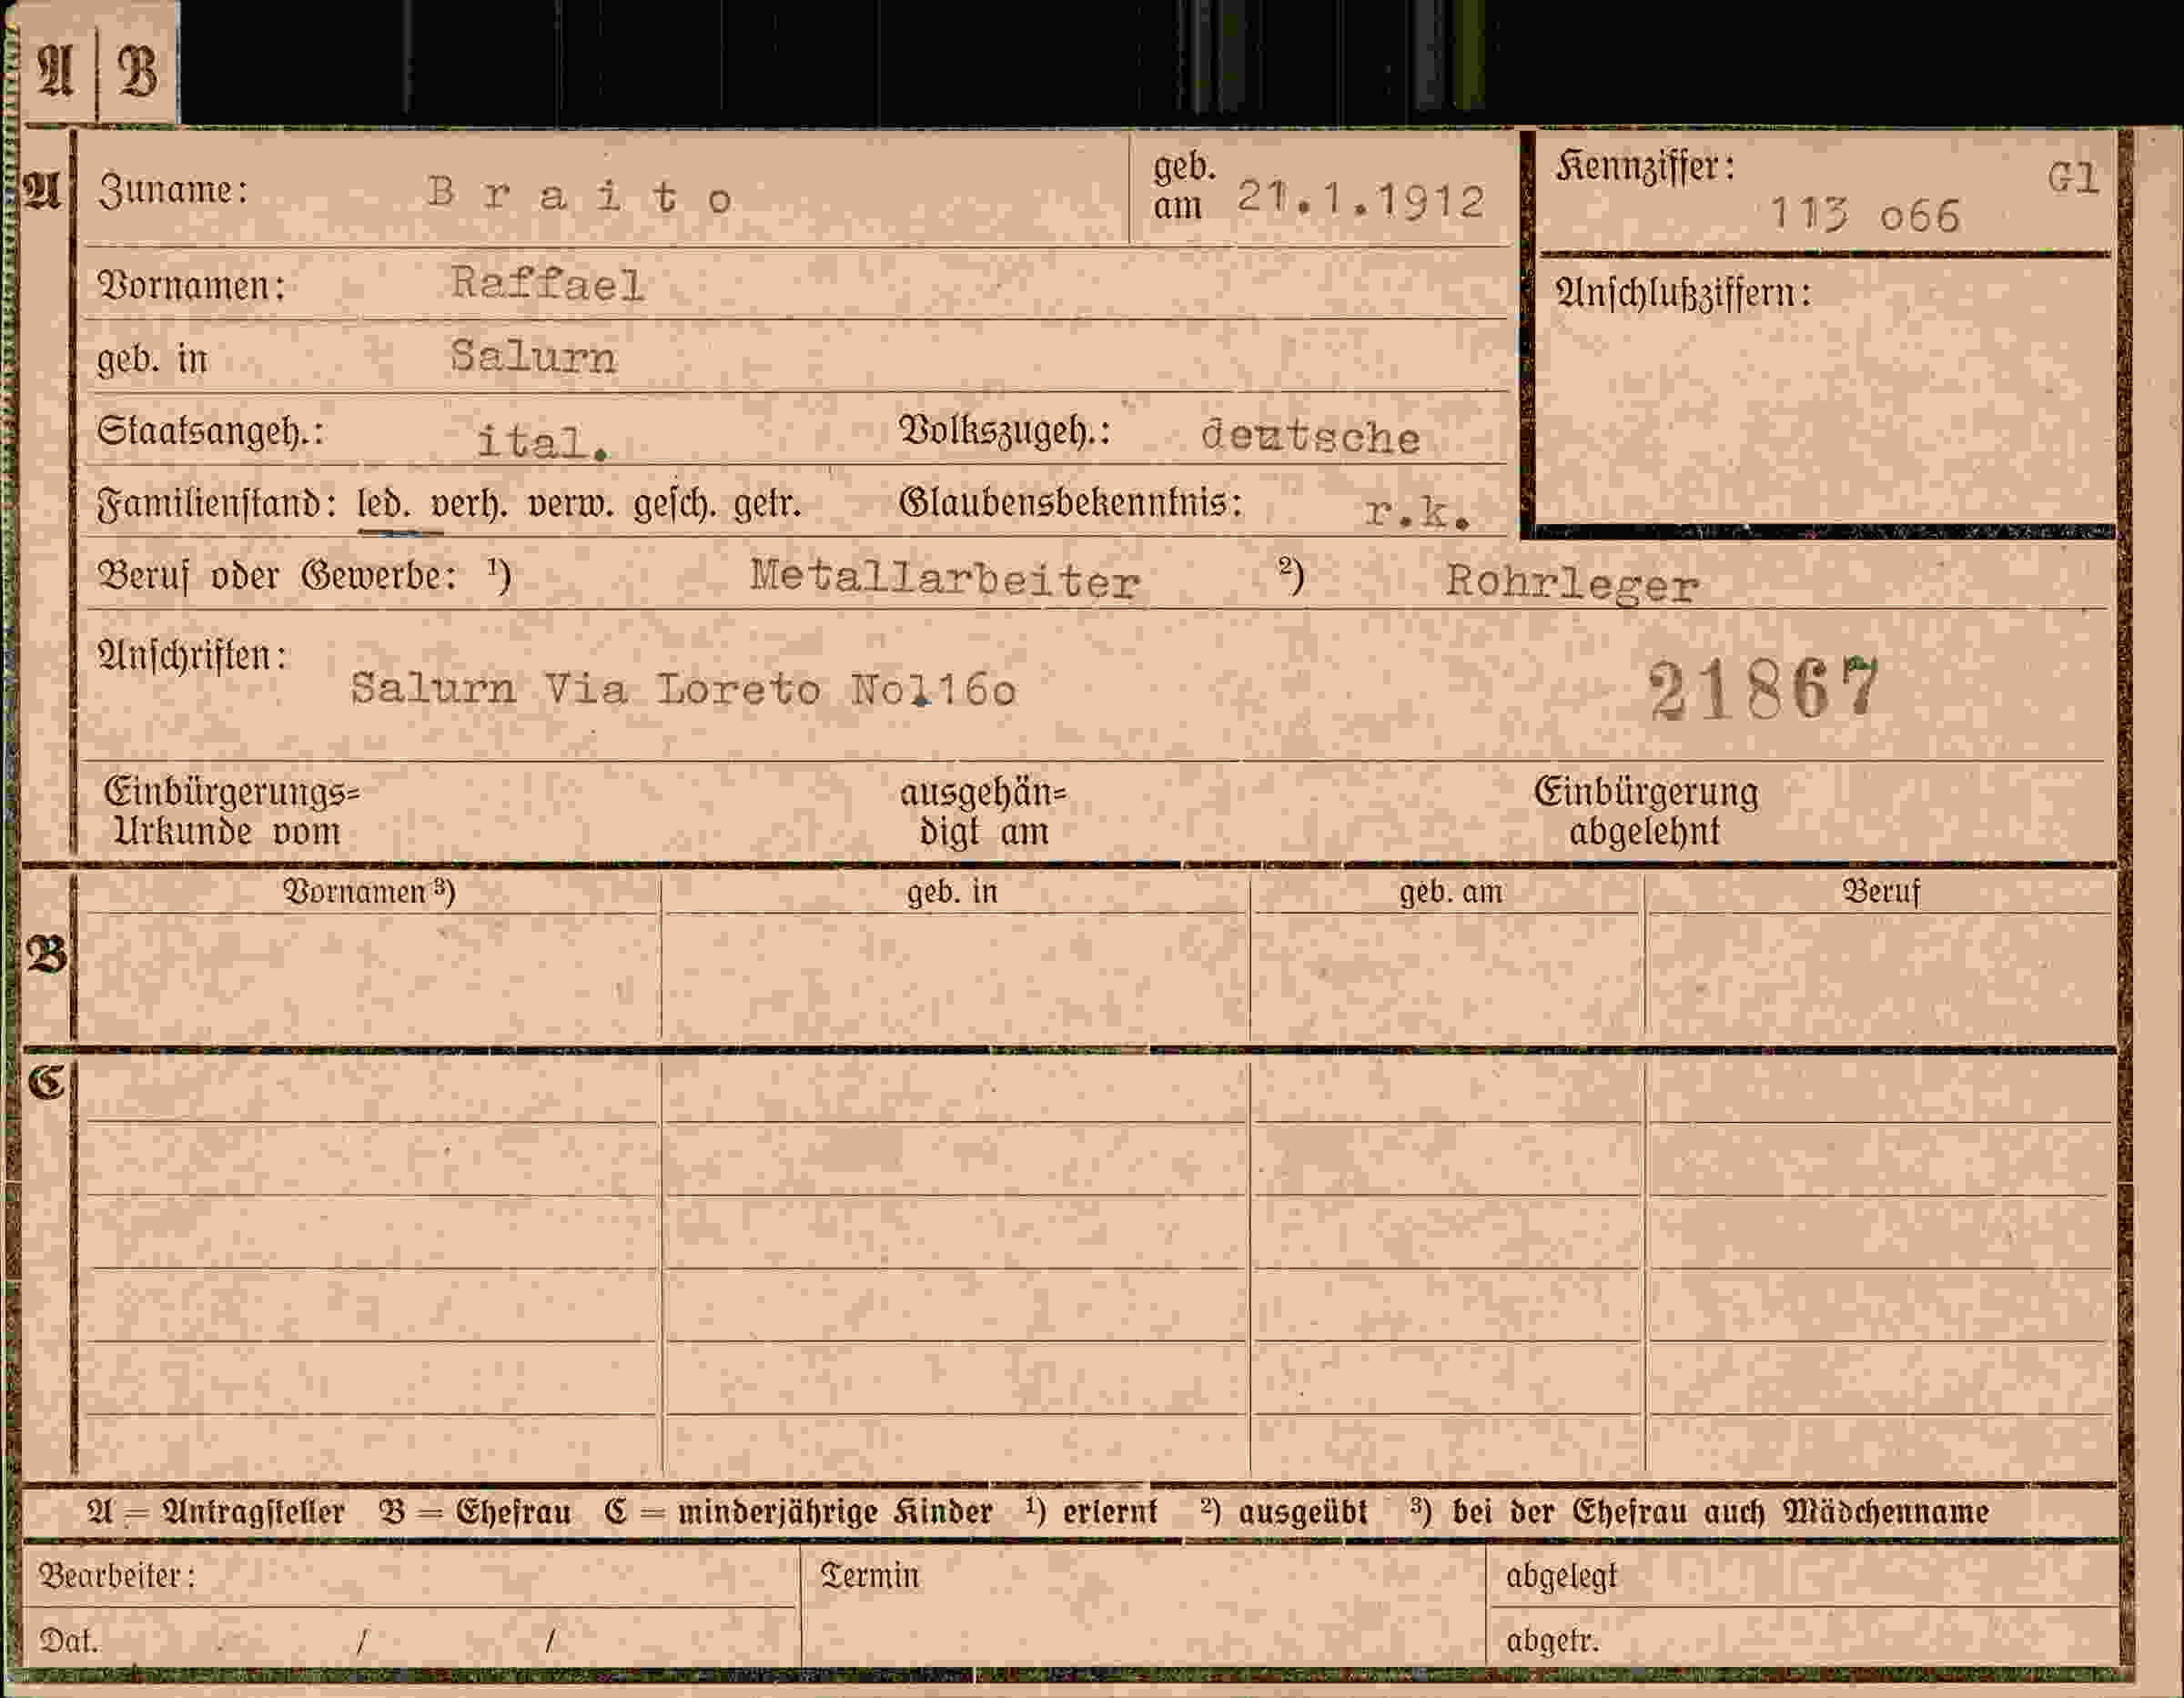 A | B
A Zuname: Braito geb. am 21.1.1912 Kennziffer: Gl
113 o66
Vornamen: Raffael Anschlußziffern:
geb. in Salurn
Staatsangeh.: ital. Volkszugeh.: deutsche
Familienstand: led. verh. verw. gesch. getr. Glaubensbekenntnis: r.k.
Beruf oder Gewerbe: 1) Metallarbeiter 2) Rohrleger
Anschriften: Salurn Via Loreto No.16o 21867
Einbürgerungs= ausgehän= Einbürgerung
Urkunde vom digt am abgelehnt
Vornamen 3) geb. in geb. am Beruf
B
C
A = Antragsteller B = Ehefrau C = minderjährige Kinder 1) erlernt 2) ausgeübt 3) bei der Ehefrau auch Mädchenname
Bearbeiter: Termin abgelegt
Dat. / / abgetr.